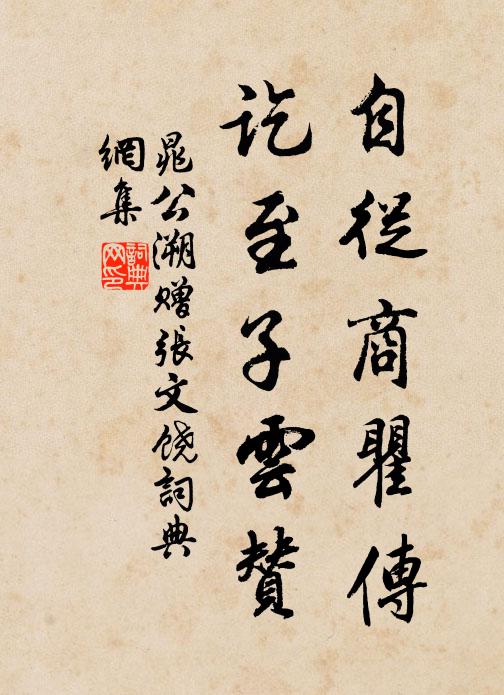 自從商瞿傳
訖至子雲贊
晁公溯贈張文饒詞典
網集
詞典
網印